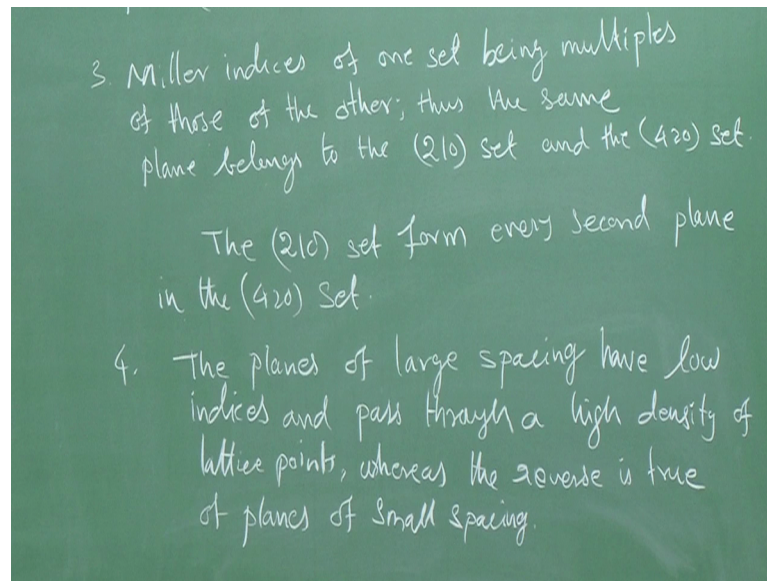 3. Miller indices of one set being multiples
of those of the other; thus the same
plane belongs to the (210) set and the (420) set.
The (210) set form every second plane
in the (420) set.
4. The planes of large spacing have low
indices and pass through a high density of
lattice points, whereas the reverse is true
of planes of small spacing.